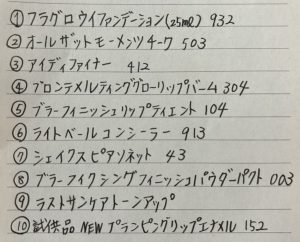 ① フラグロウイファンデーション(25ml) 932
② オールザットモーメンツチーク 503
③ アイディファイナー 412
④ ブロンテメルティンググローリップバーム 304
⑤ ブラーフィニッシュリップティエント 104
⑥ ライトベールコンシーラー 913
⑦ シェイクスピアソネット 43
⑧ ブラーフィクシングフィニッシュパウダーパクト 003
⑨ ラストサンケアトーンアップ
⑩ 試供品 NEW プランピングリップエナメル 152